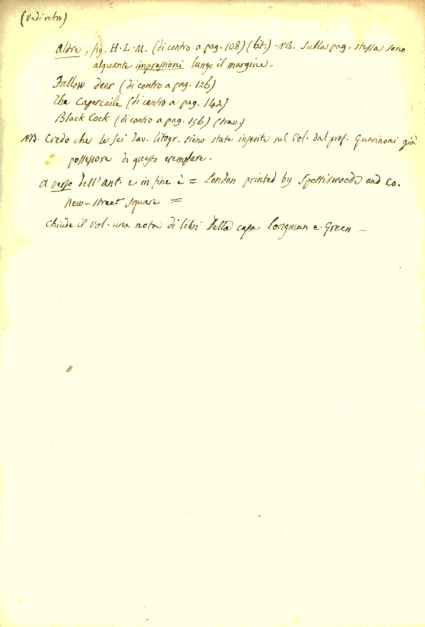 (Vedi retro)
Altre, fig. H. L. M. (di contro a pag. 108) (bis) - NB. Sulla pag. stessa sono
alquante impressioni lungo il margine -
Fallow deer (di contro a pag. 126)
The Capercaile (di contro a pag. 142)
Black Cock (di contro a pag. 156)
NB. Credo che le sei tav. litogr. sieno state inserite nel vol. dal prof. Guarinoni già
possessore di questo esemplare -
A verso dell'ant. e in fine è = London printed by Spottiswoode and Co.
New-street square =
Chiude il vol. una nota di libri della casa Longman e Green -